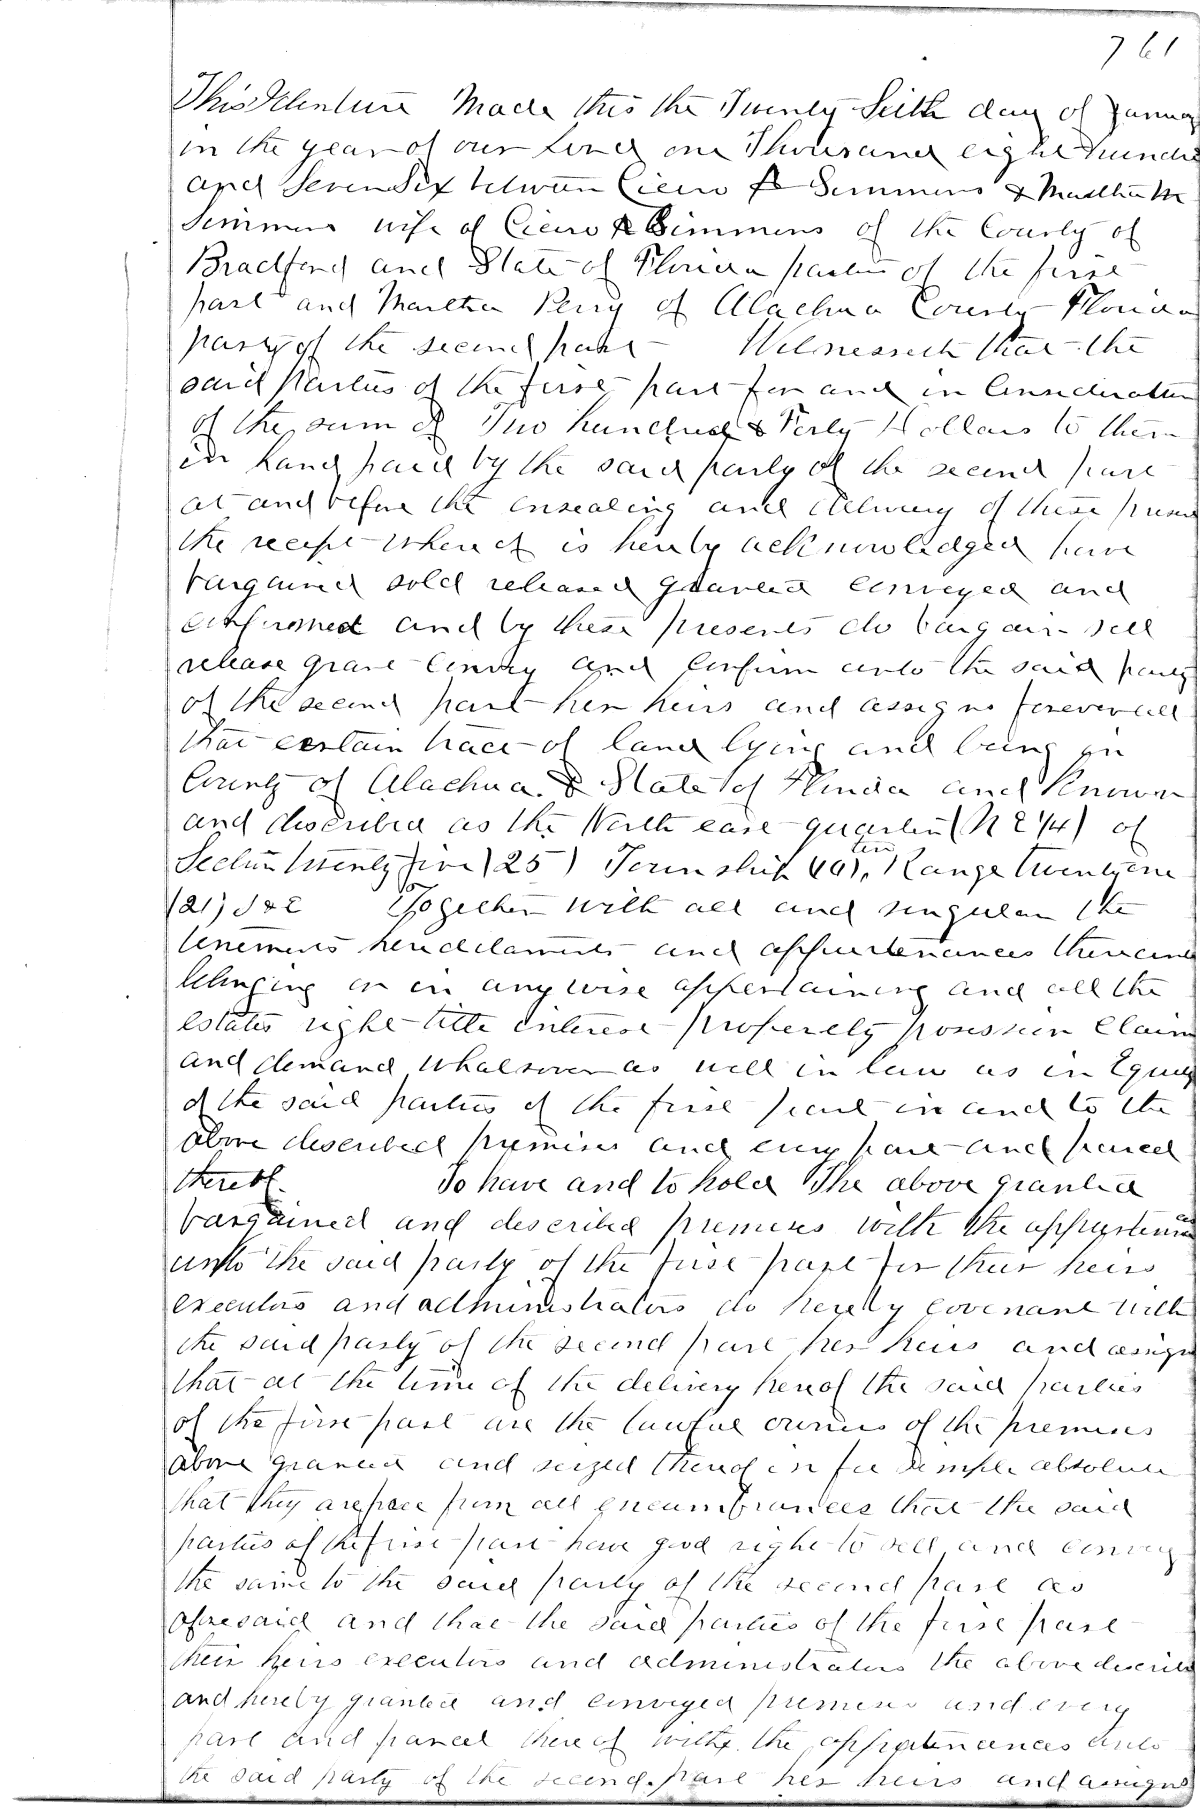 761
This Identure Made this the Twenty Sixth day of Januay
in the year of our Lord one Thousand eight hundre
and Seven Six between Cicero A Simmons & Martha M
Simmons wife of Cicero A Simmons of the County of
Bradford and State of Florida parties of the first
part and Martha Perry of Alachua County Florida
party of the second part Witnesseth that the
said parties of the first part for and in Consideration
of the sum of Two hundred & Forty Dollars to them
in hand paid by the said party of the second part
at and before the ensealing and delivery of these presen
the receipt where of is hereby acknowledged have
bargained sold released granted conveyed and
confirmed and by these presents do bargain sell
release grant convey and confirm unto the said party
of the second part her heirs and assigns forever all
that certain tract of land lying and being in
County of Alachua & State of Florida and Known
and described as the North east quarter (N E 1/4) of
Section twenty five (25) Township ten (10), Range twenty one
(21) S & E Together with all and singular the
tenements hereditaments and appurtenances thereunto
belonging or in anywise appertaining and all the
estates right title interest property possession Claim
and demand whatsoever as well in law as in Equity
of the said parties of the first part in and to the
above described premises and every part and parcel
thereof. To have and to hold The above granted
bargained and described premises with the appurtenances
unto the said party of the first part for their heirs
executors and administrators do hereby covenant with
the said party of the second part her heirs and assigns
that at the time of the delivery hereof the said parties
of the first part are the lawful owners of the premises
above granted and seized thereof in fee simple absolute
that they are free from all encumbrances that the said
parties of the first part have good right to sell and convey
the same to the said party of the second part as
aforesaid and that the said parties of the first part
their heirs executors and administrators the above describe
and hereby granted and conveyed premises and every
part and parcel there of with the appurtenances unto
the said party of the second part her heirs and assigns